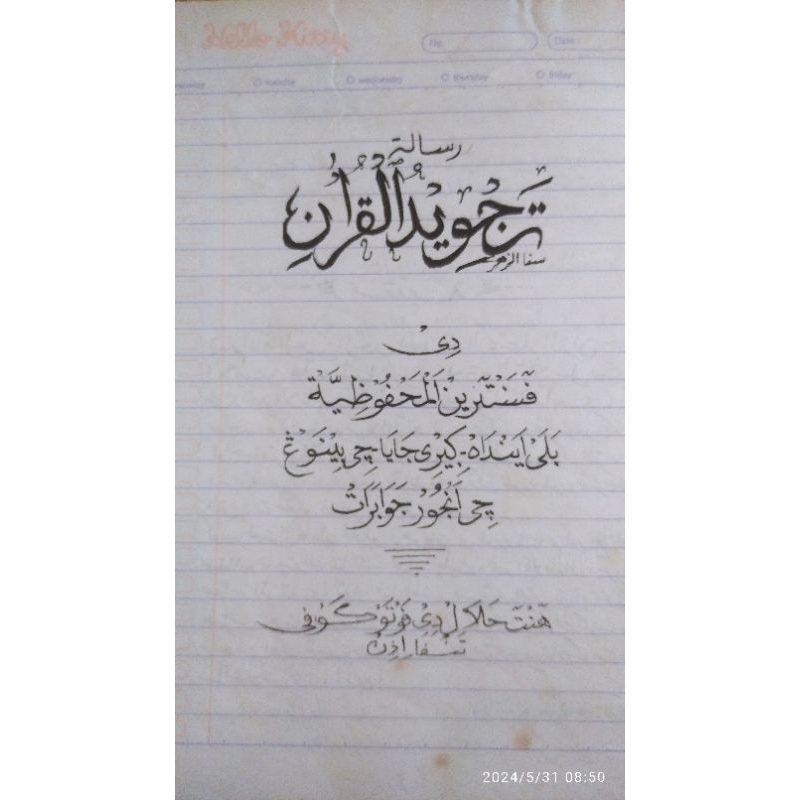 Hello Kitty
No. Date
monday tuesday wednesday thursday friday
رسالة
تَجْوِيْدُ ٱلْقُرْاٰنِ
دِىْ
فَسَنْتَرَيْنْ اَلْمَحْفُوْظِيَّة
بَلَىْ اَيْنْدَاهْ-كِيْرِى جَايَا-چِى بِيْنَوْڠْ
چِى اَنْجُوْرْ جَوَابَرَاتْ
حَلَالْ دِىْ فَوْتَوْ كَوْفِى
تَنْفَا اِذِنْ
2024/5/31 08:50